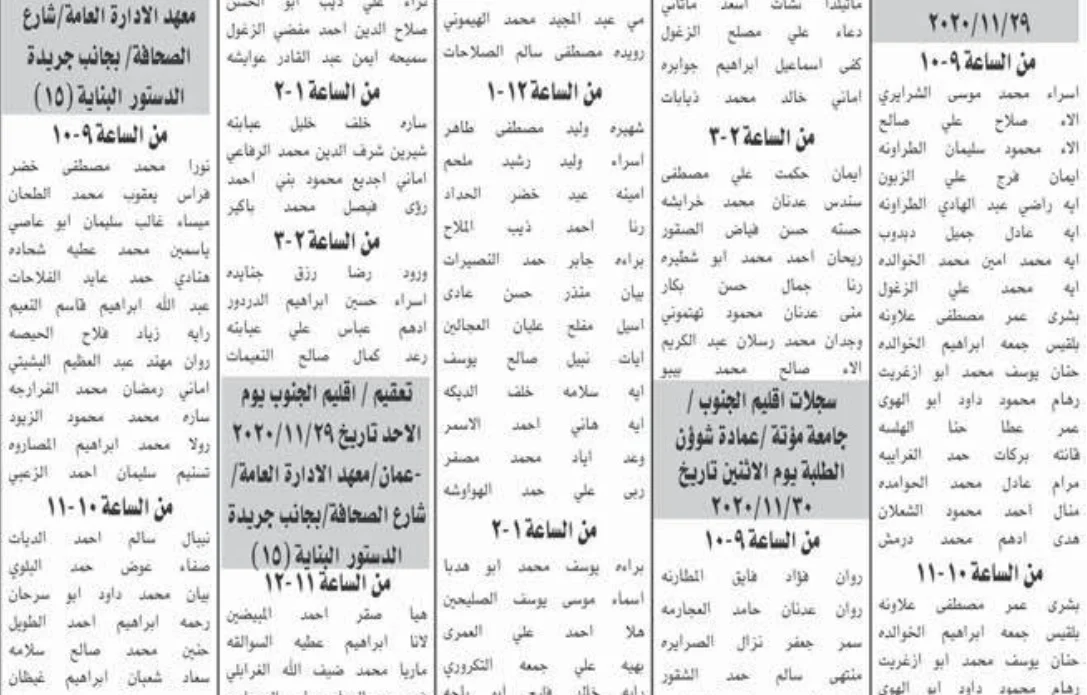 ٢٠٢٠/١١/٢٩
من الساعة ٩-١٠
اسراء محمد موسى الشرايري
الاء صلاح علي صالح
الاء محمود سليمان الطراونه
ايمان فرج علي الزبون
ايه راضي عبد الهادي الطراونه
ايه عادل جميل دبدوب
ايه محمد امين محمد الخوالده
ايه محمد علي الزغول
بشرى عمر مصطفى علاونه
بلقيس جمعه ابراهيم الخوالده
حنان يوسف محمد ابو ازغريت
رهام محمود داود ابو الهوى
عمر عطا حنا الهلسه
فانته بركات حمد الغرايبه
مرام عادل محمد الحوامده
منال احمد محمود الشعلان
هدى ادهم محمد درمش
من الساعة ١٠-١١
بشرى عمر مصطفى علاونه
بلقيس جمعه ابراهيم الخوالده
حنان يوسف محمد ابو ازغريت
رهام محمود داود ابو الهوى
ماتيلدا نشات اسعد ماتاني
دعاء علي مصلح الزغول
كفى اسماعيل ابراهيم جوابره
اماني خالد محمد ذيابات
من الساعة ٢-٣
ايمان حكمت علي مصطفى
سندس عدنان محمد خرابشه
حسنه حسن فياض الصقور
ريحان احمد محمد ابو شطيره
رنا جمال حسن بكار
منى عدنان محمود تهتموني
وجدان محمد رسلان عبد الكريم
الاء صالح محمد بيبو
سجلات اقليم الجنوب /
جامعة مؤتة /عمادة شوؤن
الطلبة يوم الاثنين تاريخ
٢٠٢٠/١١/٣٠
من الساعة ٩-١٠
روان فؤاد فايق المطارنه
روان عدنان حامد العجارمه
سمر جعفر نزال الصرايره
منتهى سالم حمد الشقور
مي عبد المجيد محمد الهيموني
رويده مصطفى سالم الصلاحات
من الساعة ١٢-١
شهيره وليد مصطفى طاهر
اسراء وليد رشيد ملحم
امينه عيد خضر الحداد
رنا احمد ذيب الملاح
براءه جابر حمد النصيرات
بيان منذر حسن عادى
اسيل مفلح عليان العجالين
ايات نبيل صالح يوسف
ايه سلامه خلف الديكه
ايه هاني احمد الاسمر
وعد اياد محمد مصفر
ربى علي حمد الهواوشه
من الساعة ١-٢
براءه يوسف محمد ابو هدبا
اسماء موسى يوسف الصليحين
هلا احمد علي العمرى
بهيه علي جمعه التكروري
علي ذيب ابو الحسن
صلاح الدين احمد مفضي الزغول
سميحه ايمن عبد القادر عوايشه
من الساعة ١-٢
ساره خلف خليل عبابنه
شيرين شرف الدين محمد الرفاعي
اماني اجديع محمود بني احمد
رؤى فيصل محمد باكير
من الساعة ٢-٣
ورود رضا رزق جنايده
اسراء حسين ابراهيم الدردور
ادهم عباس علي عبابنه
رعد كمال صالح النعيمات
تعقيم / اقليم الجنوب يوم
الاحد تاريخ ٢٠٢٠/١١/٢٩
-عمان/معهد الادارة العامة/
شارع الصحافة/بجانب جريدة
الدستور البناية (١٥)
من الساعة ١١-١٢
هيا صقر احمد المبيضين
لانا ابراهيم عطيه السوالقه
ماريا محمد ضيف الله الغرابلي
معهد الادارة العامة/شارع
الصحافة/ بجانب جريدة
الدستور البناية (١٥)
من الساعة ٩-١٠
نورا محمد مصطفى خضر
فراس يعقوب محمد الطحان
ميساء غالب سليمان ابو عاصي
ياسمين محمد عطيه شحاده
هنادي حمد عايد الفلاحات
عبد الله ابراهيم قاسم النعيم
رايه زياد فلاح الحيصه
روان مهند عبد العظيم البشيتي
اماني رمضان محمد الفرارجه
ساره محمد محمود الزيود
رولا محمد ابراهيم المصاروه
تسنيم سليمان احمد الزعبي
من الساعة ١٠-١١
نيبال سالم احمد الديات
صفاء عوض حمد البلوي
بيان محمد داود ابو سرحان
رحمه ابراهيم احمد الطويل
حنين محمد صالح سلامه
سعاد شعبان ابراهيم غيظان